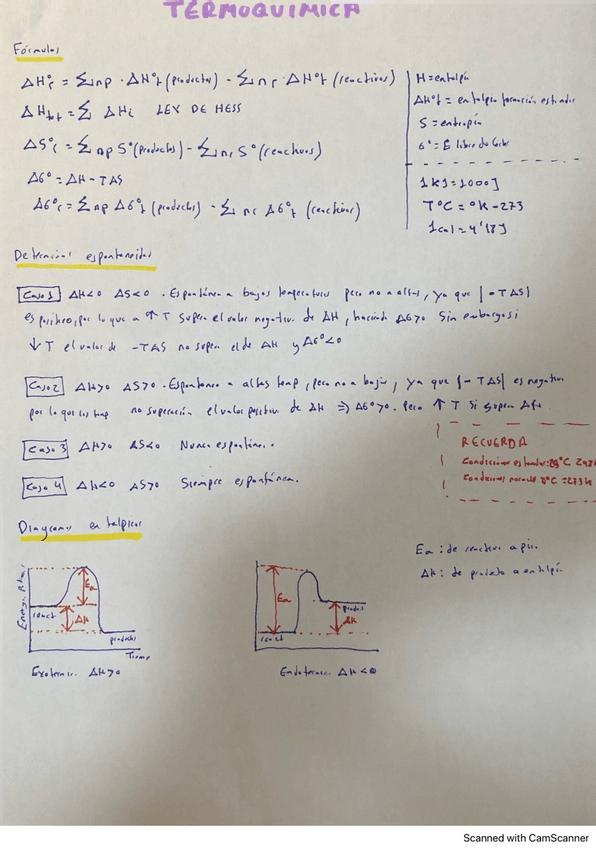 TERMOQUIMICA
Fórmulas
ΔH°r = Σnp · ΔH°f (productos) - Σnr · ΔH°f (reactivos)
ΔHtot = Σ ΔHi LEY DE HESS
ΔS°r = Σnp S° (productos) - Σnr S° (reactivos)
ΔG° = ΔH - TΔS
ΔG°r = Σnp ΔG°f (productos) - Σnr ΔG°f (reactivos)
H = entalpia
ΔH°f = entalpia formación estandar
S = entropia
G° = E libre de Gibbs
1KJ = 1000J
T°C = °K - 273
1cal = 4'18J
Determinar espontaneidad
Caso 1 ΔH<0 ΔS<0 · Espontánea a bajas temperaturas pero no a altas, ya que |-TΔS|
es positivo, por lo que a ↑T supera el valor negativo de ΔH, haciendo ΔG>0 Sin embargo si
↓T el valor de -TΔS no supera el de ΔH y ΔG°<0
Caso 2 ΔH>0 ΔS>0 · Espontanea a altas temp, pero no a bajas, ya que |-TΔS| es negativo
por lo que los temp no superación el valor positivo de ΔH ⇒ ΔG°>0. Pero ↑T si supera
Caso 3 ΔH>0 ΔS<0 Nunca espontánea.
Caso 4 ΔH<0 ΔS>0 Siempre espontánea.
RECUERDA
Condiciones estandar: 25°C 298
Condiciones normales 0°C = 273K
Diagramas entalpicos
Ea: de reactivo a pico
ΔH: de producto a entalpia
Energia
react
Ea
ΔH
productos
Tiempo
Exotermic. ΔH>0
Ea
react
produc
ΔH
Endotermic. ΔH<0
Scanned with CamScanner